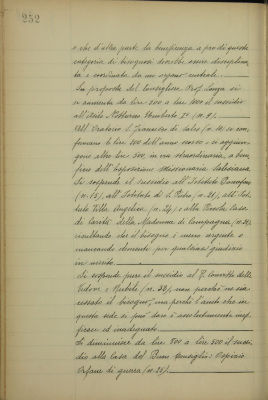 252
e che d'altra parte la beneficenza a pro di queste
categorie di bisognosi dovrebbe essere disciplina-
ta e coordinata da un organo centrale.
Su proposta del Consigliere Prof. Lanza si
aumenta da lire 500 a lire 1000 il sussidio
all'Asilo Notturno Umberto I° (n. 9).
All'Oratorio S. Francesco di Sales (n. 10) si con-
fermano le lire 500 dell'anno scorso e si aggiun-
gono altre lire 500, in via straordinaria, a bene-
ficio dell'Esposizione Missionaria Salesiana.
Si sospende il sussidio all'Istituto
(n. 15), all'Istituto di S. Pietro (n. 21), all'Isti-
tuto Villa Angelica (n. 24) e alla Piccola Casa
di Carità della Madonna di Campagna (n. 26),
risultando che il bisogno è meno urgente o
mancando elementi per qualsiasi giudizio
in merito.
Si sospende pure il sussidio al R. Convitto delle
Vedove e Nubili (n. 23), non perchè ne sia
cessato il bisogno, ma perchè l'aiuto che in
questa sede si può dare è assolutamente inef-
ficace ed inadeguato.
Si diminuisce da lire 800 a lire 500 il sussi-
dio alla Casa del Buon Consiglio: Ospizio
Orfane di guerra (n. 29).